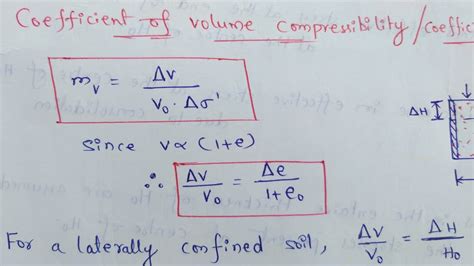 Coefficient of volume compressibility / coeffic
m_v = Δv / V₀ . Δσ'
since v ∝ (1+e)
∴ Δv / V₀ = Δe / 1+e₀
ΔH
For a laterally confined soil, Δv / V₀ = ΔH / H₀